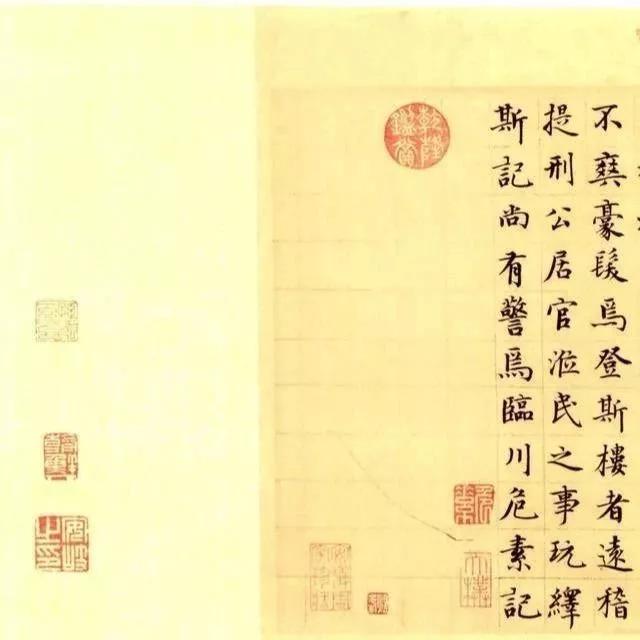 不爽豪髮焉登斯樓者遠稽
提刑公居官涖民之事玩繹
斯記尚有警焉臨川危素記
乾隆鑑賞
危素
太樸
安岐之印